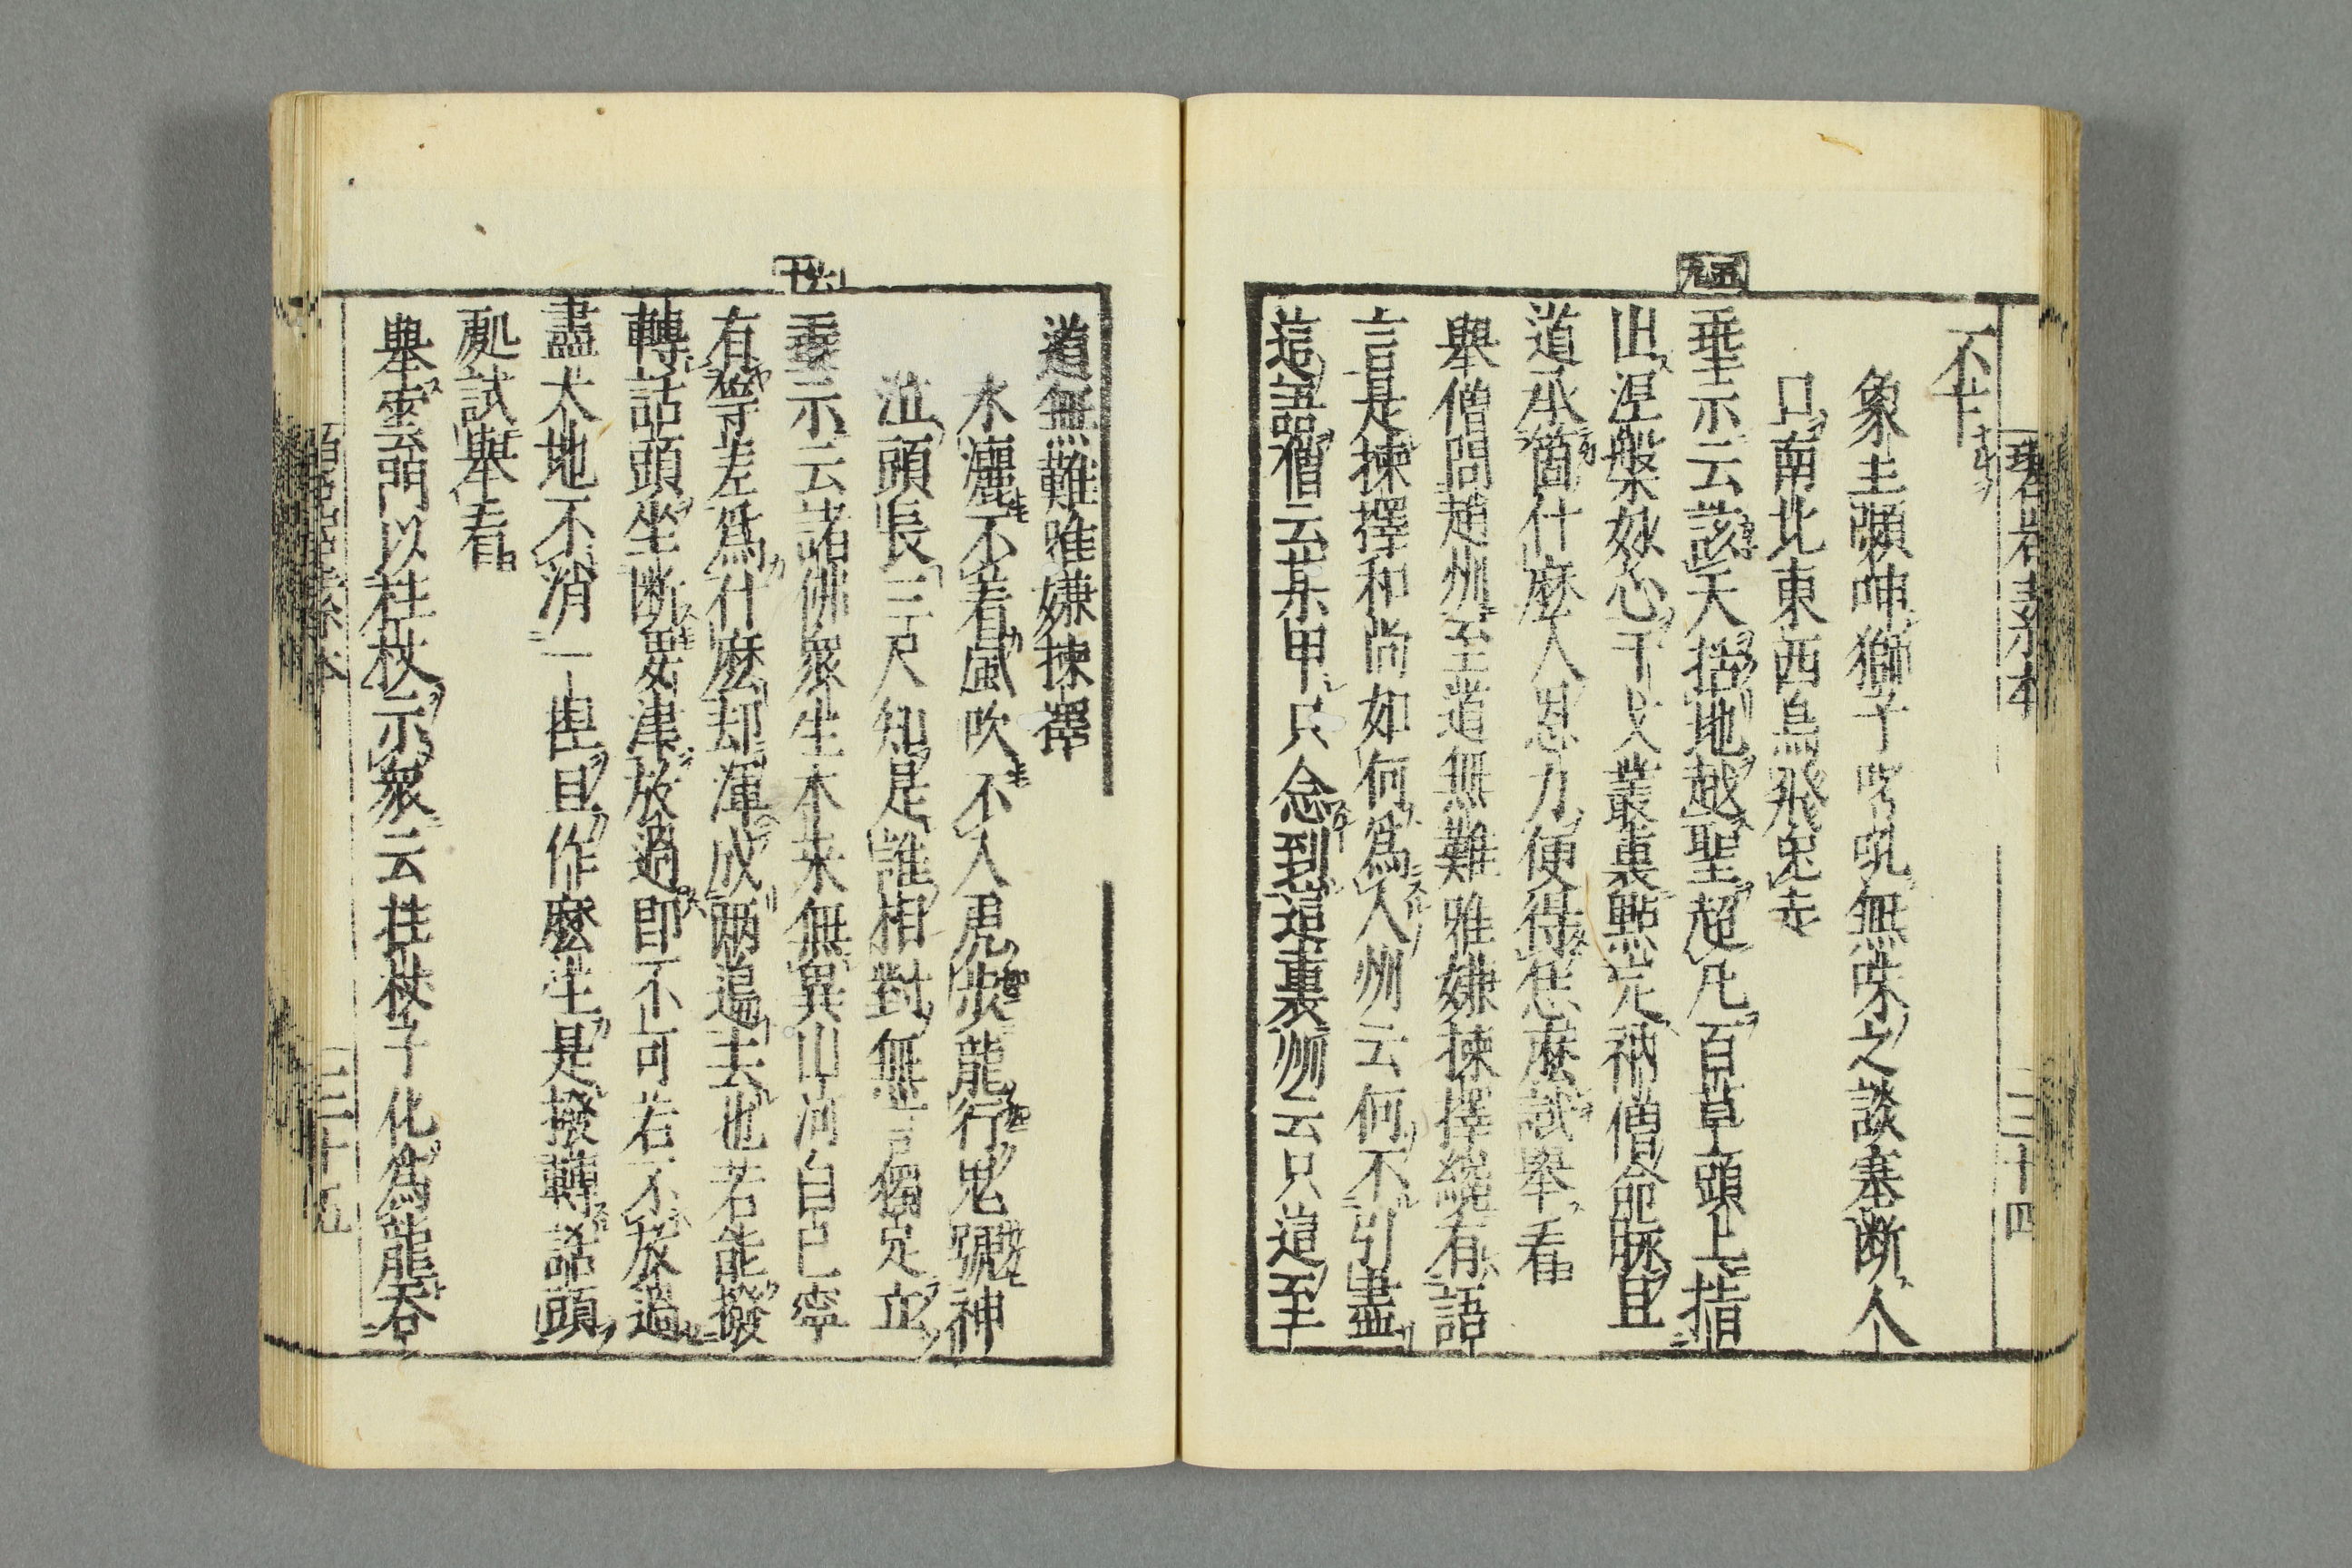 碧岩素本
三十四
不下
象王嚬呻獅子哮吼無味之談塞断人
口南北東西烏飛兎走
五九
垂示云該天括地越聖超凡百草頭上指
出涅槃妙心干戈叢裏點定衲僧命脉且
道承箇什麼人恩力便得恁麼試舉看
舉僧問趙州至道無難唯嫌揀擇纔有語
言是揀擇和尚如何為人州云何不引盡
這語僧云某甲只念到這裏州云只這至
道無難唯嫌揀擇
水灑不着風吹不入虎步龍行鬼號神
泣頭長三尺知是誰相對無言獨足立
六十
垂示云諸佛衆生本來無異山河自己寧
有等差為什麼却渾成兩邊去也若能撥
轉話頭坐断要津放過即不可若不放過
盡大地不消一捏且作麼生是撥轉話頭
處試舉看
舉雲門以拄杖示衆云拄杖子化為龍吞
三十五